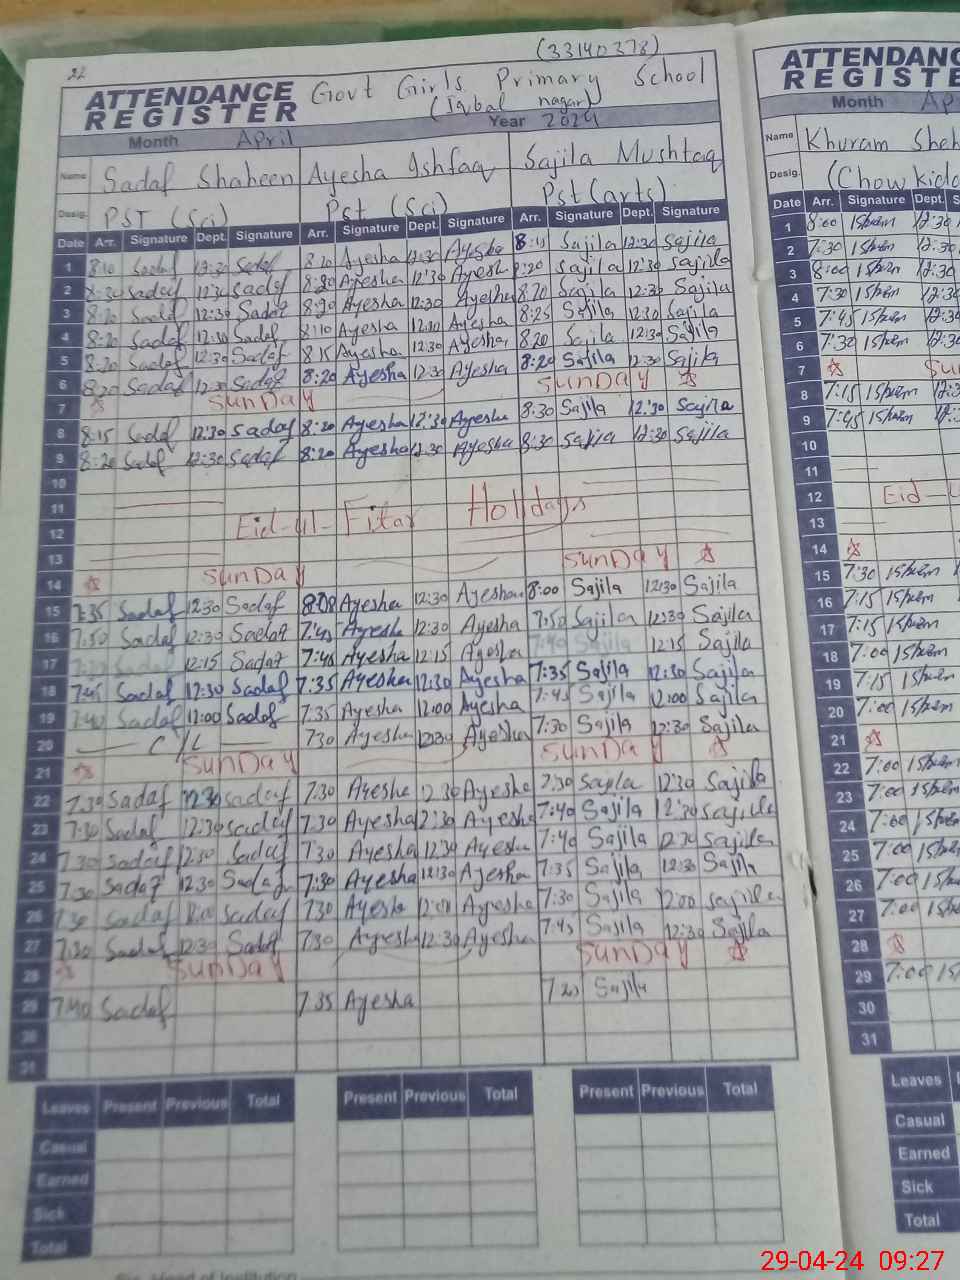 22
(33140378)
ATTENDANCE REGISTER Govt Girls Primary School
(Iqbal nagar)
Month April Year 2024
Name Sadaf Shaheen Ayesha Ishfaq Sajila Mushtaq
Desig. PST (Sci) Pst (Sci) Pst (arts)
Date Arr. Signature Dept. Signature Arr. Signature Dept. Signature Arr. Signature Dept. Signature
1 8:10 Sadaf 12:30 Sadaf 8:20 Ayesha 12:30 Ayesha 8:15 Sajila 12:30 Sajila
2 8:30 Sadaf 12:30 Sadaf 8:20 Ayesha 12:30 Ayesha 8:20 Sajila 12:30 Sajila
3 8:20 Sadaf 12:30 Sadaf 8:20 Ayesha 12:30 Ayesha 8:20 Sajila 12:30 Sajila
4 8:20 Sadaf 12:30 Sadaf 8:10 Ayesha 12:30 Ayesha 8:25 Sajila 12:30 Sajila
5 8:20 Sadaf 12:30 Sadaf 8:15 Ayesha 12:30 Ayesha 8:20 Sajila 12:30 Sajila
6 8:20 Sadaf 12:30 Sadaf 8:20 Ayesha 12:30 Ayesha 8:20 Sajila 12:30 Sajila
7 SunDay SunDay
8 8:15 Sadaf 12:30 Sadaf 8:20 Ayesha 12:30 Ayesha 8:30 Sajila 12:30 Sajila
9 8:20 Sadaf 12:30 Sadaf 8:20 Ayesha 12:30 Ayesha 8:30 Sajila 12:30 Sajila
10
11
12 Eid-ul-Fitar Holidays
13
14 SunDay SunDay
15 7:35 Sadaf 12:30 Sadaf Ayesha 12:30 Ayesha 8:00 Sajila 12:30 Sajila
16 7:50 Sadaf 12:30 Sadaf 7:45 Ayesha 12:30 Ayesha 7:50 Sajila 12:30 Sajila
17 Sadaf 12:15 Sadaf 7:40 Ayesha 12:15 Ayesha 7:40 Sajila 12:15 Sajila
18 7:45 Sadaf 12:30 Sadaf 7:35 Ayesha 12:30 Ayesha 7:35 Sajila 12:30 Sajila
19 7:40 Sadaf 12:00 Sadaf 7:35 Ayesha 12:00 Ayesha 7:45 Sajila 12:00 Sajila
20 C/L 730 Ayesha 12:30 Ayesha 7:30 Sajila 12:30 Sajila
21 SunDay SunDay
22 7.30 Sadaf 12:30 Sadaf 7.30 Ayesha 12.30 Ayesha 7.30 Sajila 12:30 Sajila
23 7:30 Sadaf 12:30 Sadaf 7.30 Ayesha 12:30 Ayesha 7:40 Sajila 12:30 Sajila
24 7.30 Sadaf 12:30 Sadaf 730 Ayesha 12:30 Ayesha 7:40 Sajila 12:30 Sajila
25 7:30 Sadaf 12:30 Sadaf 7:30 Ayesha 12:30 Ayesha 7:35 Sajila 12:30 Sajila
26 7:30 Sadaf Sadaf 730 Ayesha 12:00 Ayesha 7:30 Sajila 1200 Sajila
27 7:30 Sadaf 12:30 Sadaf 730 Ayesha 12:30 Ayesha 7:45 Sajila 12:30 Sajila
28 SunDay SunDay
29 7:40 Sadaf 7.35 Ayesha 7 20 Sajila
30
31
Leaves Present Previous Total Present Previous Total Present Previous Total
Casual
Earned
Sick
Total
ATTENDANC
REGISTE
Month Ap
Name Khuram Sheh
Desig. (Chowkida
Date Arr. Signature Dept. S
1 8:00 12:30
2 7:30 12:30
3 8:00 12:30
4 7:30 12:30
5 7:45 12:30
6 7:30 12:30
7 Sun
8 7:15 12:3
9 7:45
10
11
12 Eid-u
13
14
15 7:30
16 7:15
17 7:15
18 7:00
19 7:15
20 7:00
21
22 7:00
23 7:00
24 7:00
25 7:00
26 7:00
27 7:00
28
29 7:00
30
31
Leaves
Casual
Earned
Sick
Total
29-04-24 09:27